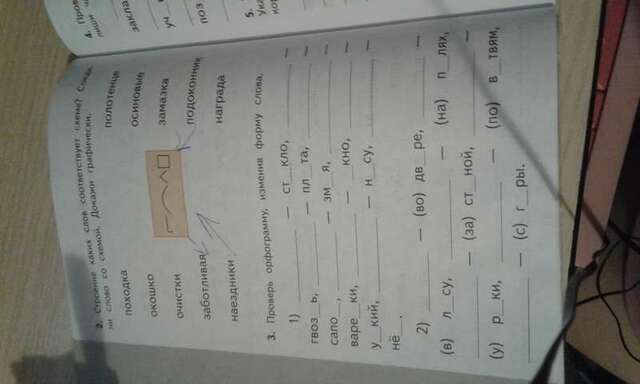 2. Строение каких слов соответствует схеме? Соеди-
ни слово со схемой. Докажи графически.
походка полотенце
окошко осиновые
очистки замазка
заботливая подоконник
наездники награда
3. Проверь орфограмму, изменив форму слова.
1) ______ — ст_кло, ______ —
гвоз_ь, ______ — пл_та, ______ —
сапо__, ______ — зм_я, ______ —
варе_ки, ______ — _кно, ______ —
у_кий, ______ — н_су, ______ —
нё__.
2) ______ — (во) дв_ре, ______ —
(в) л_су, ______ — (на) п_лях,
______ — (за) ст_ной, ______ —
(у) р_ки, ______ — (по) в_твям,
______ — (с) г_ры.